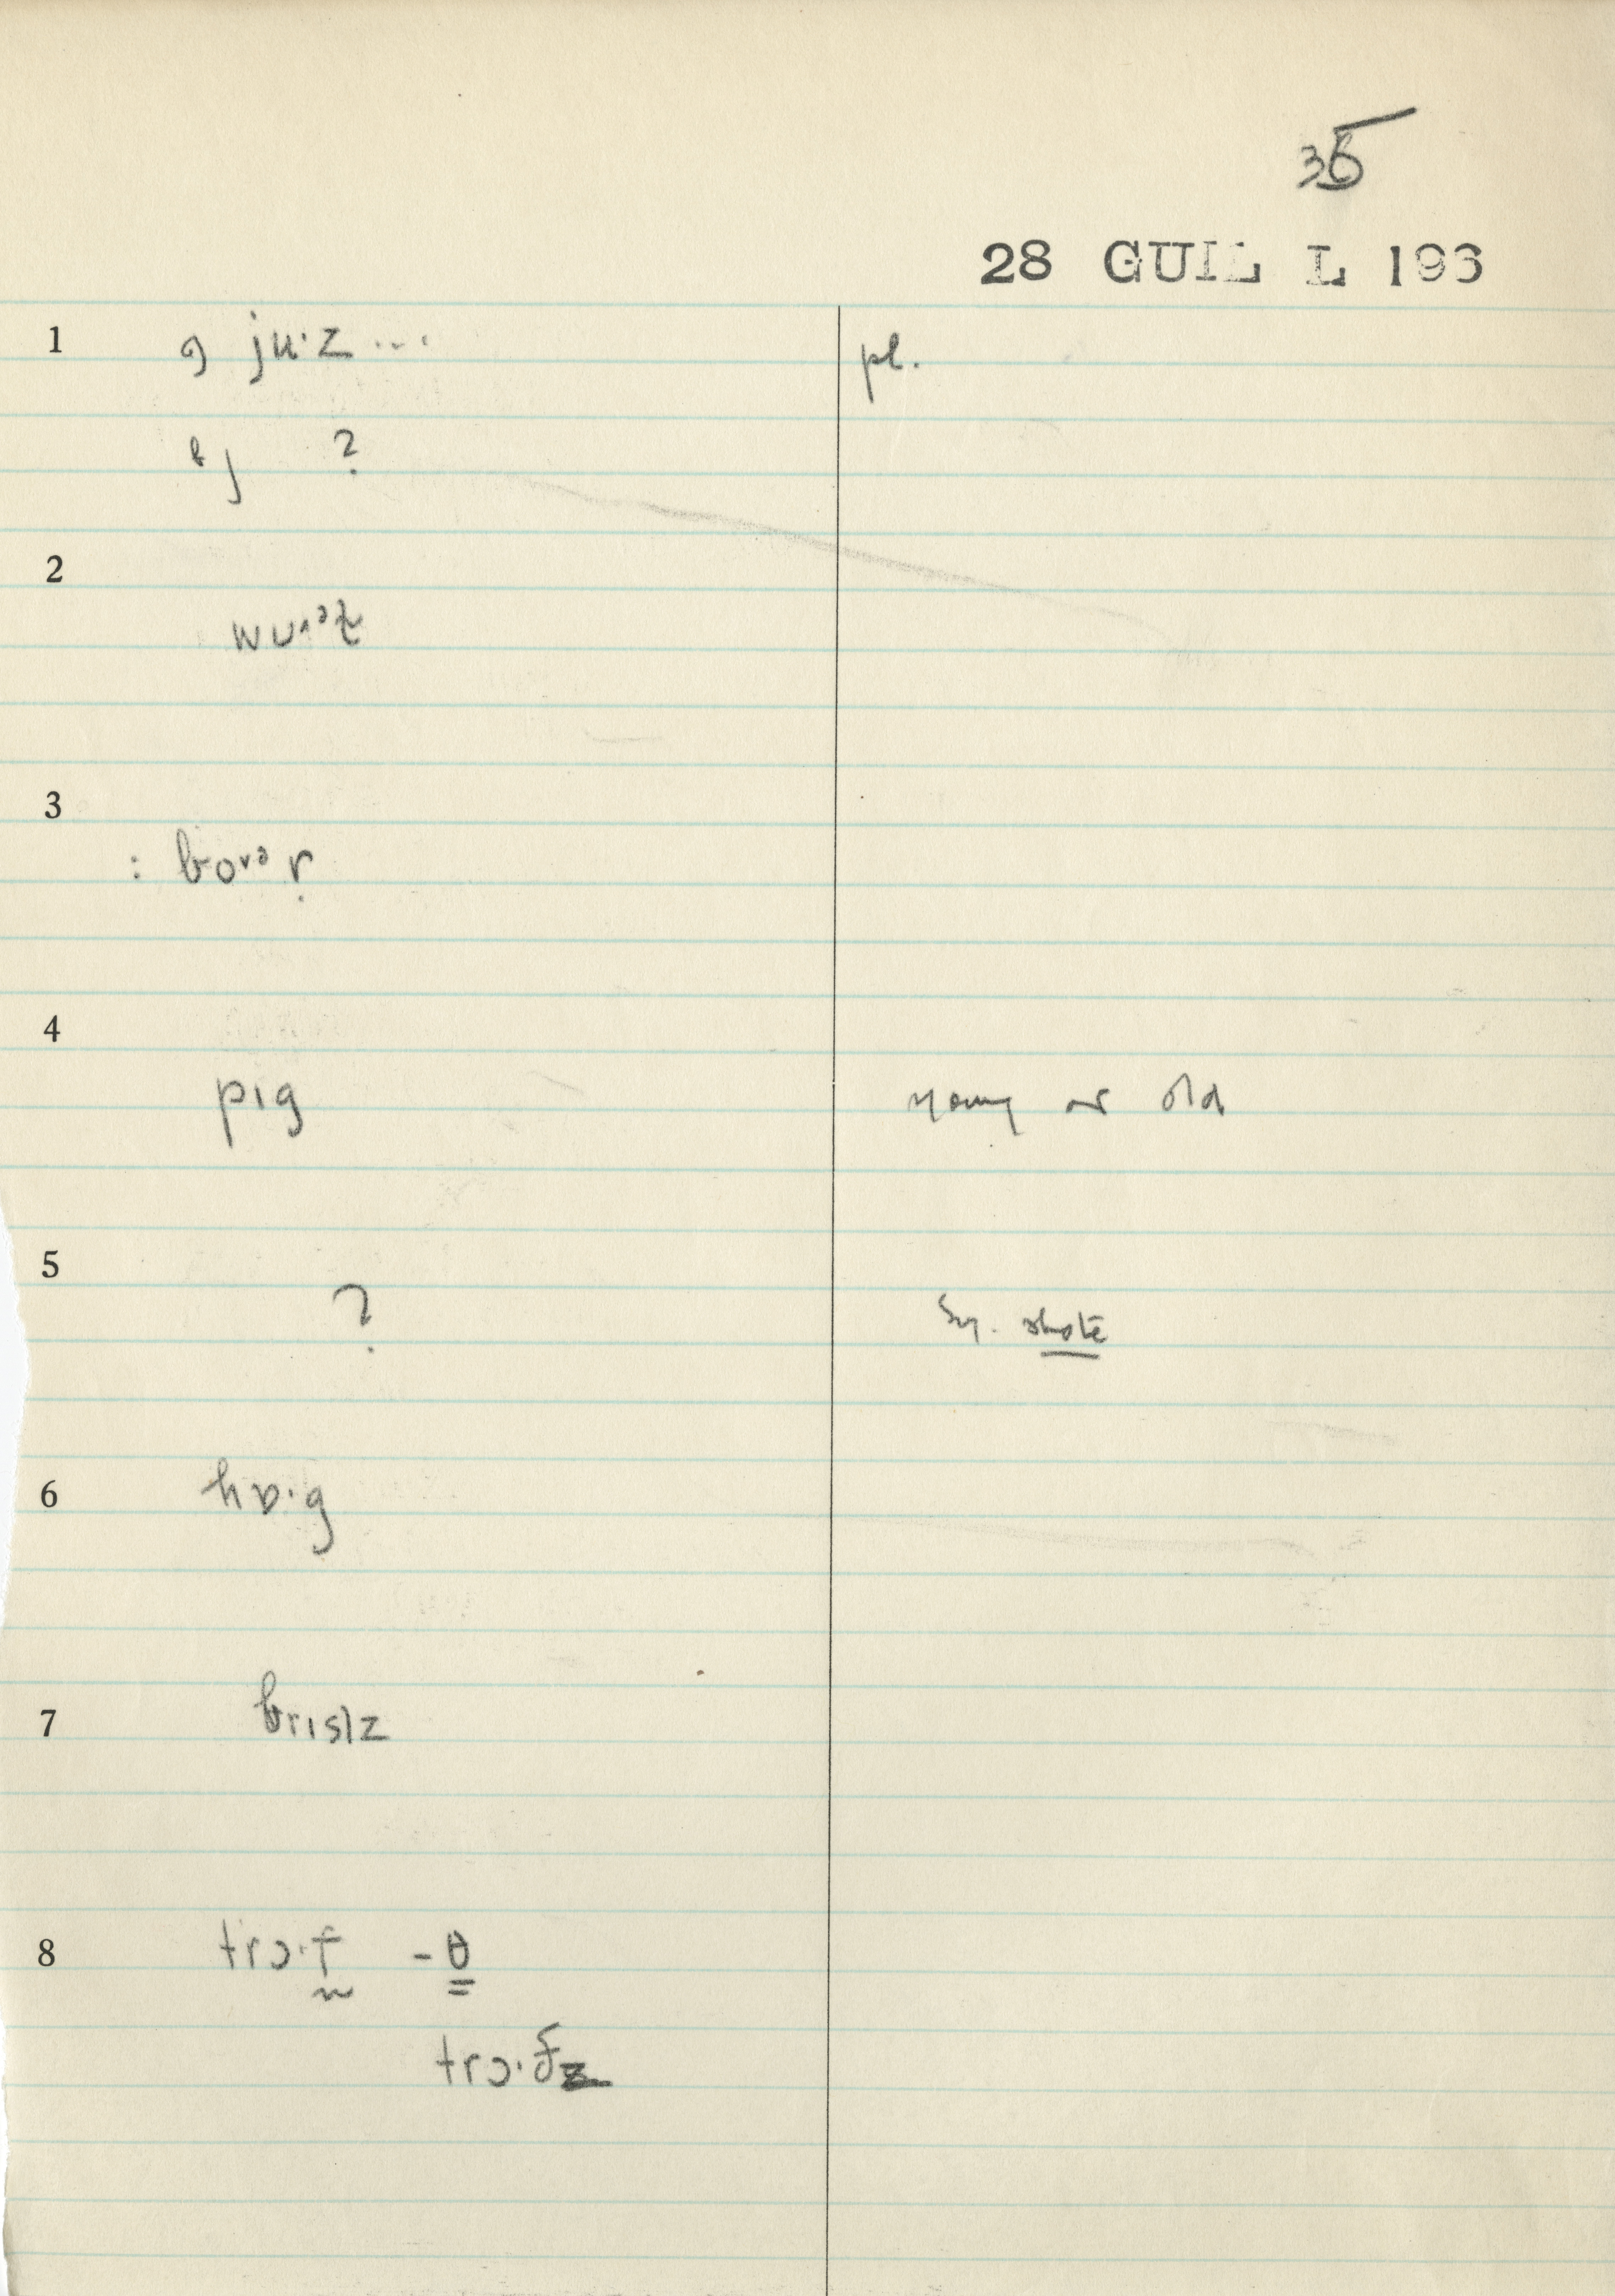 35
28 GUIL L 193
1 ə ju·z ... pl.
?
2
wʊrᵊz
3
: bo
4
pɪg young or old
5
? Sy. shote
6 hɒ·g
7 brɪslz
8 trɔ·f -θ
trɔ·ðz